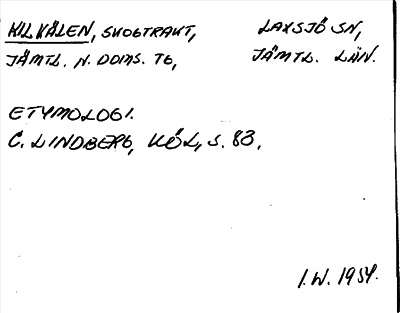 KILKÅLEN, SKOGTRAKT, LAXSJÖ SN,
JÄMTL. N. DOMS. TG, JÄMTL. LÄN.
ETYMOLOGI.
C. LINDBERG, KÖL, S. 83.
I.W. 1954.